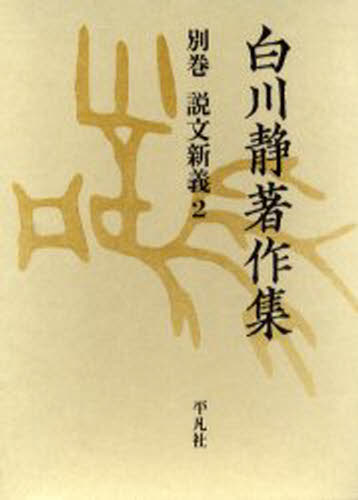 白川静著作集
別巻 説文新義2
平凡社